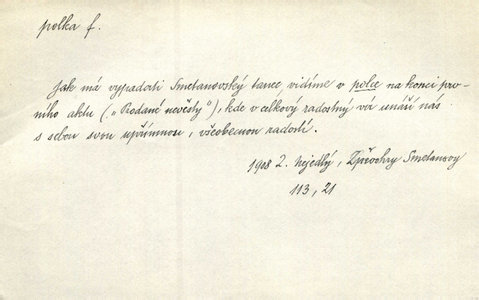 polka f.
Jak má vypadati Smetanovský tanec, vidíme v polce na konci prv-
ního aktu („Prodané nevěsty"), kde v celkový radostný vír unáší nás
s sebou svou upřímnou, všeobecnou radostí.
1908 Z. Nejedlý, Zpěvohry Smetanovy
113, 21